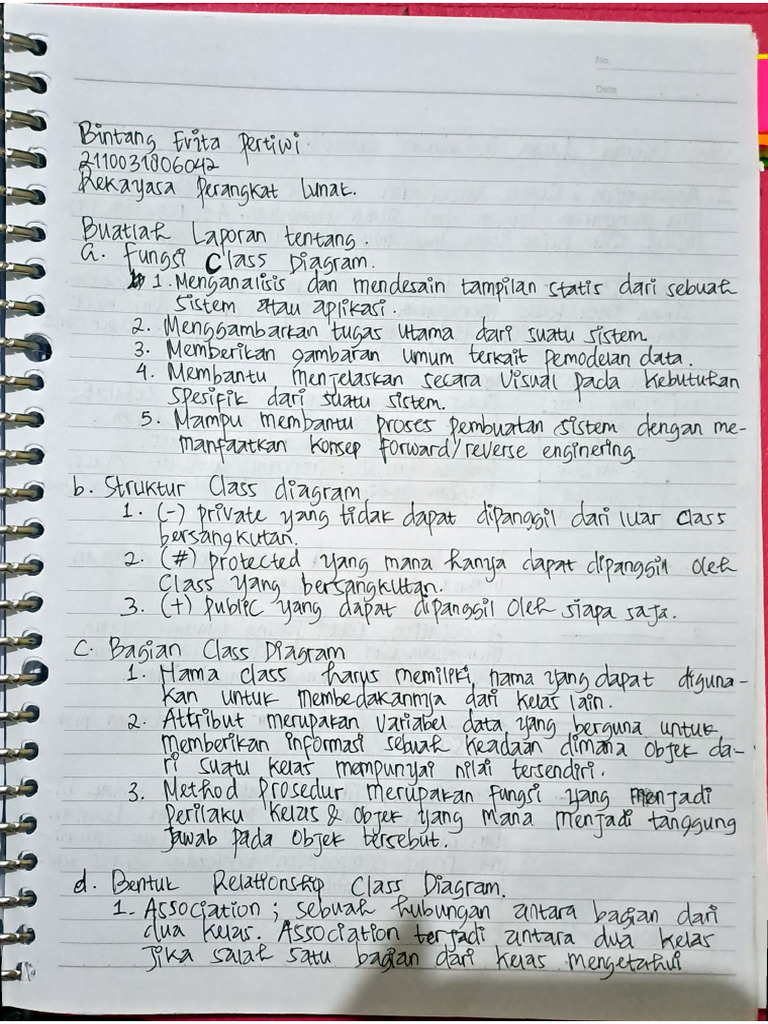 No.
Date
Bintang Evita Pertiwi.
2110031806042
Rekayasa Perangkat Lunak.
Buatlah Laporan tentang.
a. Fungsi Class Diagram.
1. Menganalisis dan mendesain tampilan statis dari sebuah
sistem atau aplikasi.
2. Menggambarkan tugas utama dari suatu sistem.
3. Memberikan gambaran umum terkait pemodelan data.
4. Membantu menjelaskan secara visual pada kebutuhan
spesifik dari suatu sistem.
5. Mampu membantu proses pembuatan sistem dengan me-
manfaatkan konsep forward/reverse enginering.
b. Struktur Class diagram
1. (-) private yang tidak dapat dipanggil dari luar class
bersangkutan.
2. (#) protected yang mana hanya dapat dipanggil oleh
Class yang bersangkutan.
3. (+) public yang dapat dipanggil oleh siapa saja.
C. Bagian Class Diagram
1. Nama class harus memiliki nama yang dapat diguna-
kan untuk membedakannya dari kelas lain.
2. Attribut merupakan variabel data yang berguna untuk
memberikan informasi sebuah keadaan dimana objek da-
ri suatu kelas mempunyai nilai tersendiri.
3. Method Prosedur merupakan fungsi yang menjadi
perilaku kelas & objek yang mana menjadi tanggung
jawab pada objek tersebut.
d. Bentuk Relationship Class Diagram.
1. Association ; sebuah hubungan antara bagian dari
dua kelas. Association terjadi antara dua kelas
jika salah satu bagian dari kelas mengetahui